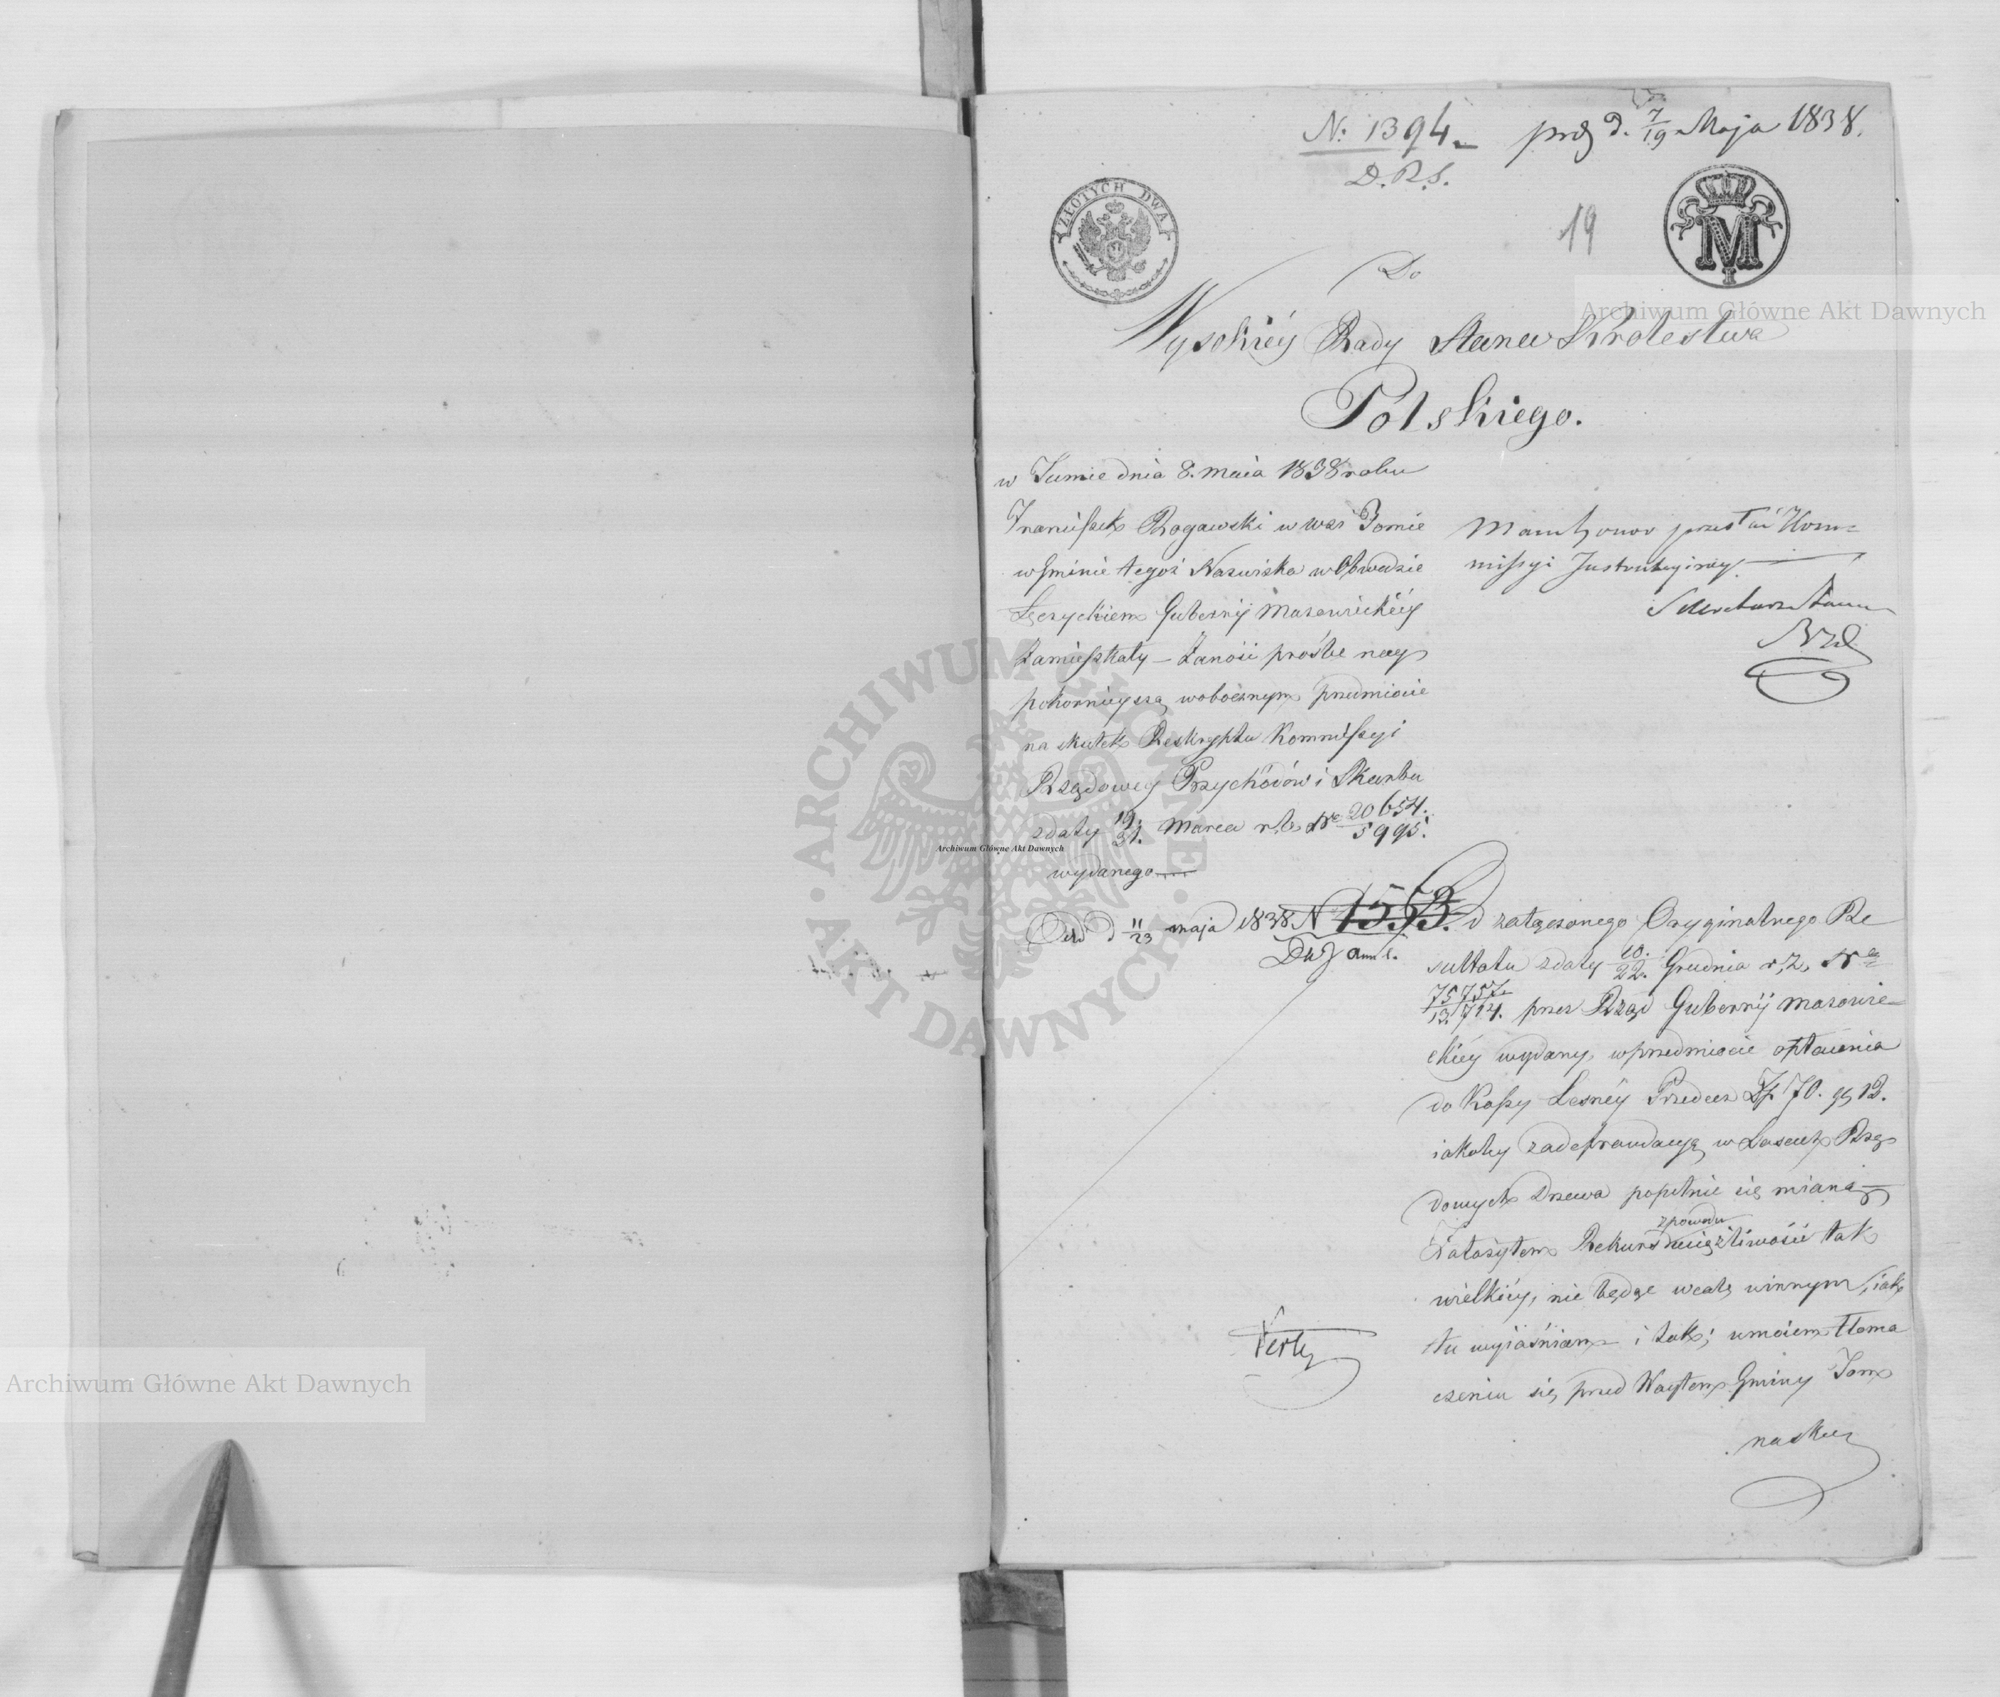 N: 1394.
D.R.S.
prz d. 7/19 Maja 1838.
ZŁOTYCH DWA
19
M
I
Do
Wysokiéy Rady Stanu Krolestwa
Polskiego.
w Tumie dnia 8. maia 1838 roku
Franciszek Rogawski w wsi Tomie
w Gminie tegoż Nazwiska w Obwodzie
Łęczyckiem Gubernij Mazowieckiéy
Zamieszkały – Zanosi prośbe nay
pokornieyszą wobocznym przedmiocie
na skutek Reskryptu Kommissyi
Rządowey Przychodów i Skarbu
zdaty 19/31. Marca r. b. Nro 20654./5995.
wydanego
Mam honor przesłać Kom=
missyi Instrukcyiney.
Sekretarz Stanu
d 11/23 maja 1838 N 1553.
Od załączonego Oryginalnego Re
zultatu zdaty 10./22. Grudnia r. z. Nro
75757/13714. przez Rząd Gubernij Mazowie=
ckiéy wydany, wprzedmiocie opłacenia
do Kassy Lesnéy Przedecz Zł 70. gr 12.
iakoby zadefraudacyą w Lasach Rzą
dowych Drzewa popełnić się mianą
Założyłem Rekurs z powodu uciążliwości tak
wielkiéy, nie będąc wcale winnym, iak
tu wyiaśniam i tak; w moiem tłoma
czeniu się przed Woytem Gminy Tom
Verte
na sku
Archiwum Główne Akt Dawnych
Archiwum Główne Akt Dawnych
Archiwum Główne Akt Dawnych
ARCHIWUM GŁÓWNE AKT DAWNYCH